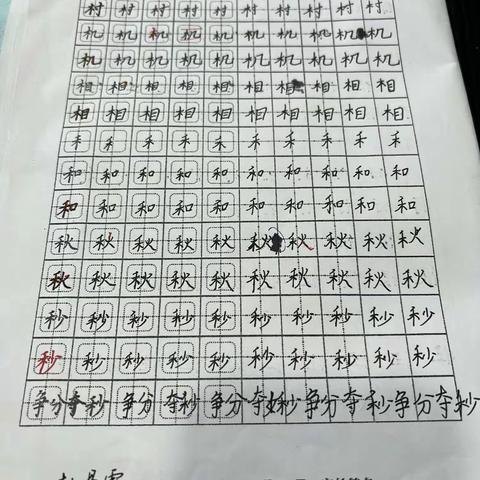 村 村 村 村 村 村 村 村 村 村
机 机 机 机 机 机 机 机 机 机
机 机 机 机 机 机 机 机 机 机
相 相 相 相 相 相 相 相 相 相
相 相 相 相 相 相 相 相 相 相
禾 禾 禾 禾 禾 禾 禾 禾 禾 禾
和 和 和 和 和 和 和 和 和 和
和 和 和 和 和 和 和 和 和 和
秋 秋 秋 秋 秋 秋 秋 秋 秋 秋
秋 秋 秋 秋 秋 秋 秋 秋 秋 秋
秒 秒 秒 秒 秒 秒 秒 秒 秒 秒
秒 秒 秒 秒 秒 秒 秒 秒 秒 秒
争分夺秒 争分 夺秒 争分夺秒 争分夺秒 争分夺秒